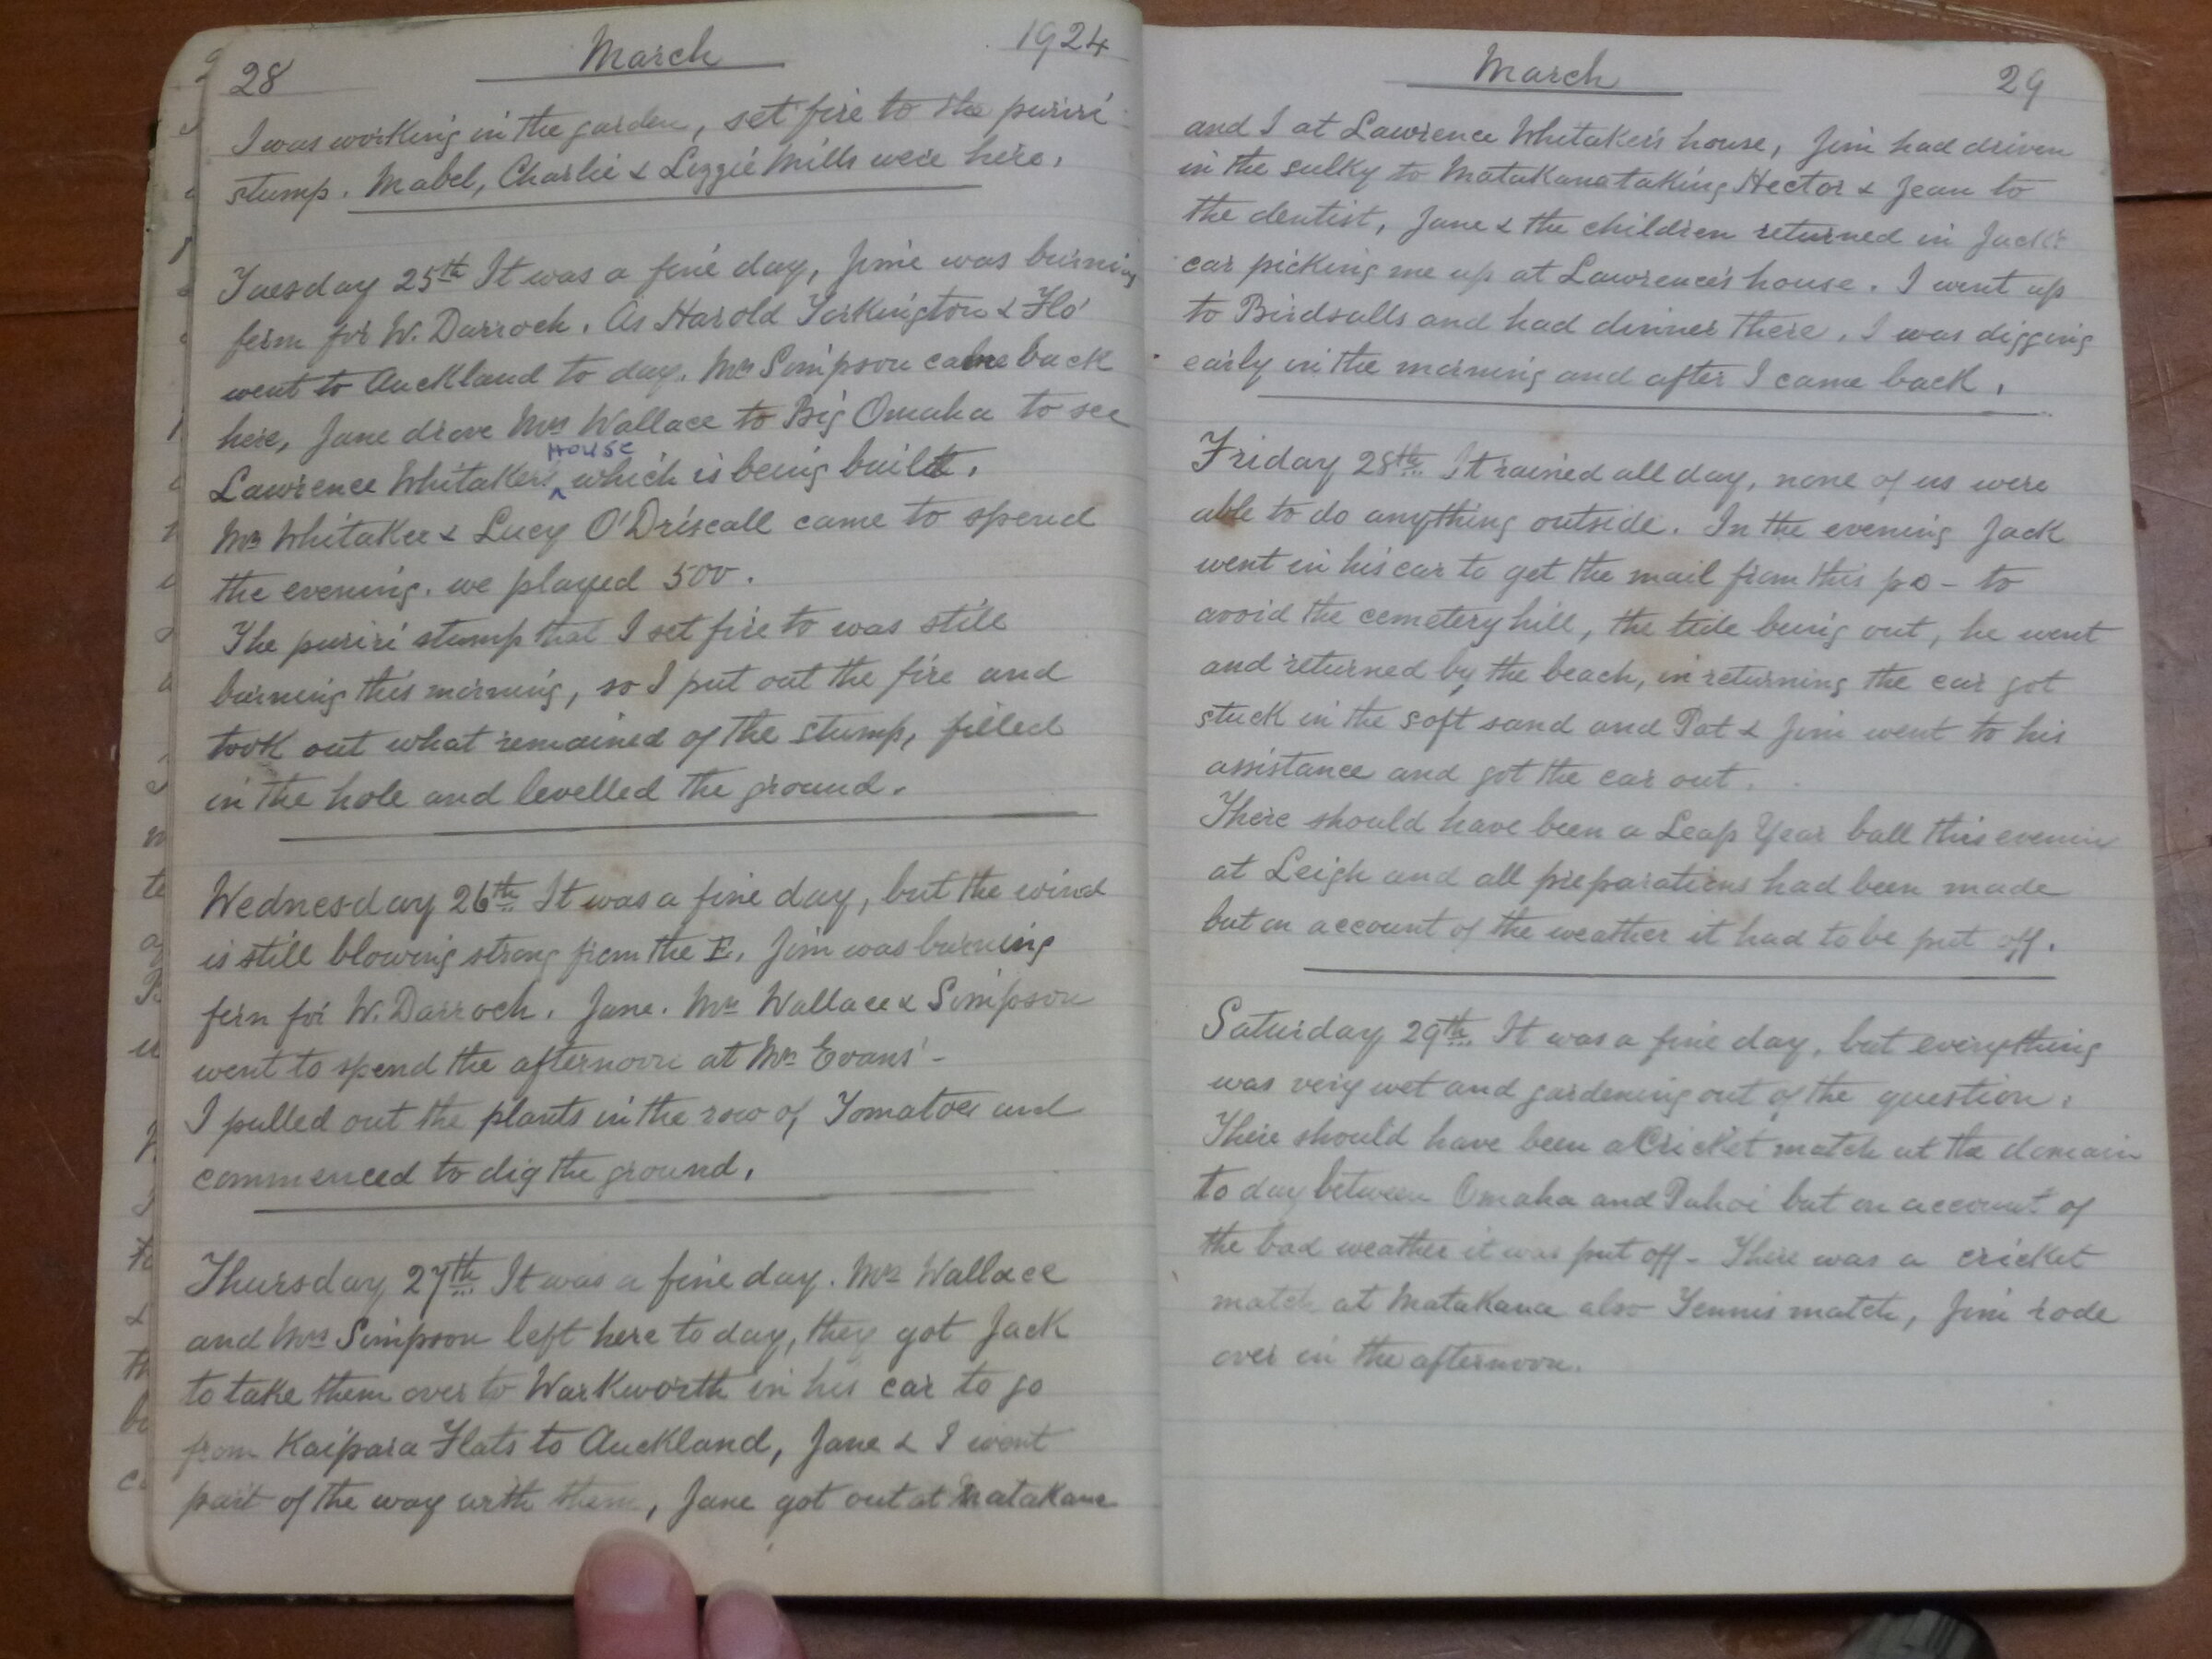 28 March 1924
I was working in the garden, set fire to the puriri
stump. Mabel, Charlie & Lizzie Mills were here.
Tuesday 25th It was a fine day, Jimie was burning
fern for W. Darroch. As Harold Torkington & Flo
went to Auckland to day. Mrs Simpson came back
here, Jane drove Mrs Wallace to Big Omaha to see
House
Lawrence Whitaker's ^ which is being built.
Mr Whitaker & Lucy O'Driscall came to spend
the evening. we played 500.
The puriri stump that I set fire to was still
burning this morning, so I put out the fire and
took out what remained of the stump, filled
in the hole and levelled the ground.
Wednesday 26th It was a fine day, but the wind
is still blowing strong from the E. Jim was burning
fern for W. Darroch. Jane. Mrs Wallace & Simpson
went to spend the afternoon at Mrs Evans' -
I pulled out the plants in the row of Tomatoes and
commenced to dig the ground.
Thursday 27th It was a fine day. Mrs Wallace
and Mrs Simpson left here to day, they got Jack
to take them over to Warkworth in his car to go
from Kaipara Flats to Auckland, Jane & I went
part of the way with them, Jane got out at Matakana
March 29
and I at Lawrence Whitaker's house, Jim had driven
in the sulky to Matakana taking Hector & Jean to
the dentist, Jane & the children returned in Jack's
car picking me up at Lawrence's house. I went up
to Birdsalls and had dinner there. I was digging
early in the morning and after I came back.
Friday 28th It rained all day, none of us were
able to do anything outside. In the evening Jack
went in his car to get the mail from this po - to
avoid the cemetery hill, the tide being out, he went
and returned by the beach, in returning the car got
stuck in the soft sand and Pat & Jim went to his
assistance and got the car out.
There should have been a Leap Year ball this evening
at Leigh and all preparations had been made
but on account of the weather it had to be put off.
Saturday 29th It was a fine day, but everything
was very wet and gardening out of the question.
There should have been a Cricket match at the domain
to day between Omaha and Puhoi but on account of
the bad weather it was put off - There was a cricket
match at Matakana also Tennis match, Jim rode
over in the afternoon.